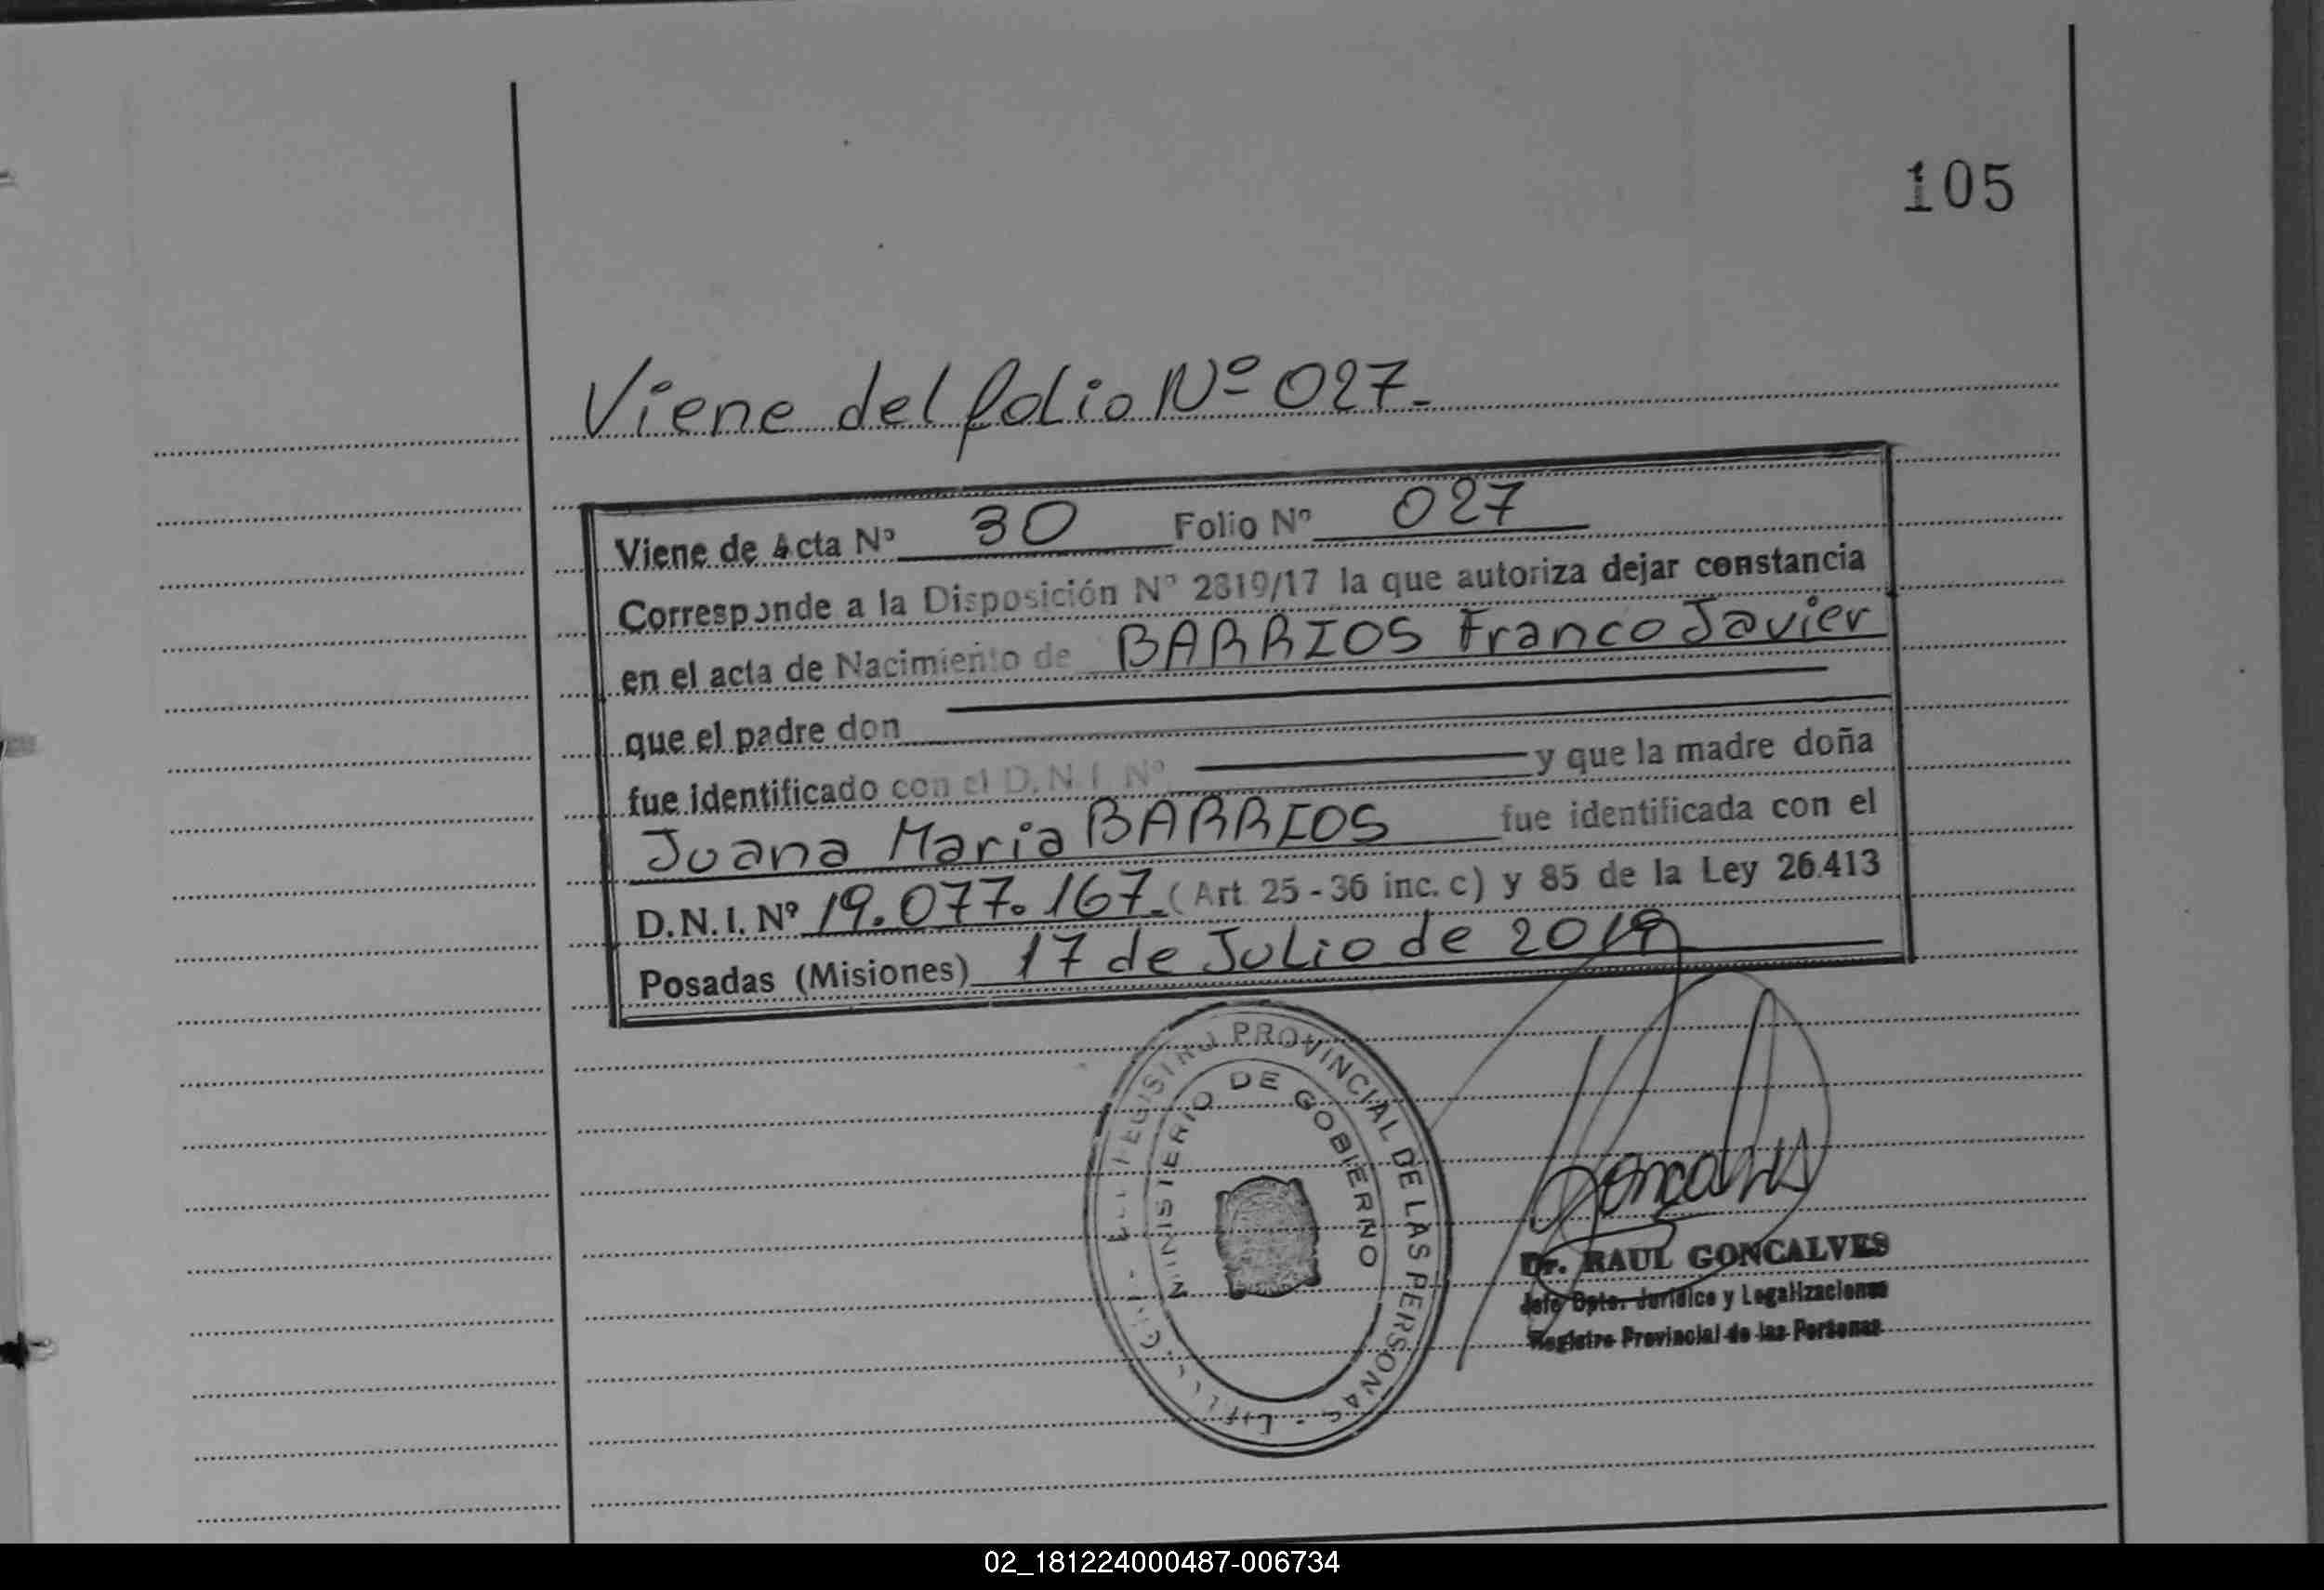 105
Viene del folio Nº 027.-
Viene de Acta Nº 30 Folio Nº 027
Corresponde a la Disposición Nº 2819/17 la que autoriza dejar constancia
en el acta de Nacimiento de BARRIOS Franco Javier
que el padre don
fue identificado con el D.N.I. Nº y que la madre doña
Juana Maria BARRIOS fue identificada con el
D.N.I. Nº 19.077.167.- (Art. 25 - 36 inc. c) y 85 de la Ley 26.413
Posadas (Misiones) 17 de Julio de 2019
REGISTRO PROVINCIAL DE LAS PERSONAS
MINISTERIO DE GOBIERNO
Goncalves
Dr. RAUL GONCALVES
Jefe Dpto. Jurídico y Legalizaciones
Registro Provincial de las Personas
02_181224000487-006734